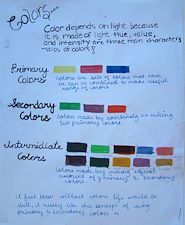 Colors
Color depends on light because
it is made of light. Hue, value,
and intensity are three main characters
-istics of colors!
Primary
Colors
Colors are sets of colors that can
be combined to make useful
range of colors.
Secondary
Colors
Colors made by combining or mixing
two primary colors.
Intermidiate
Colors
Colors made by mixing equal
amount of primary & secondary
colors.
I feel that without colors life would be
dull, I really like the concept of using
primary & secondary colors